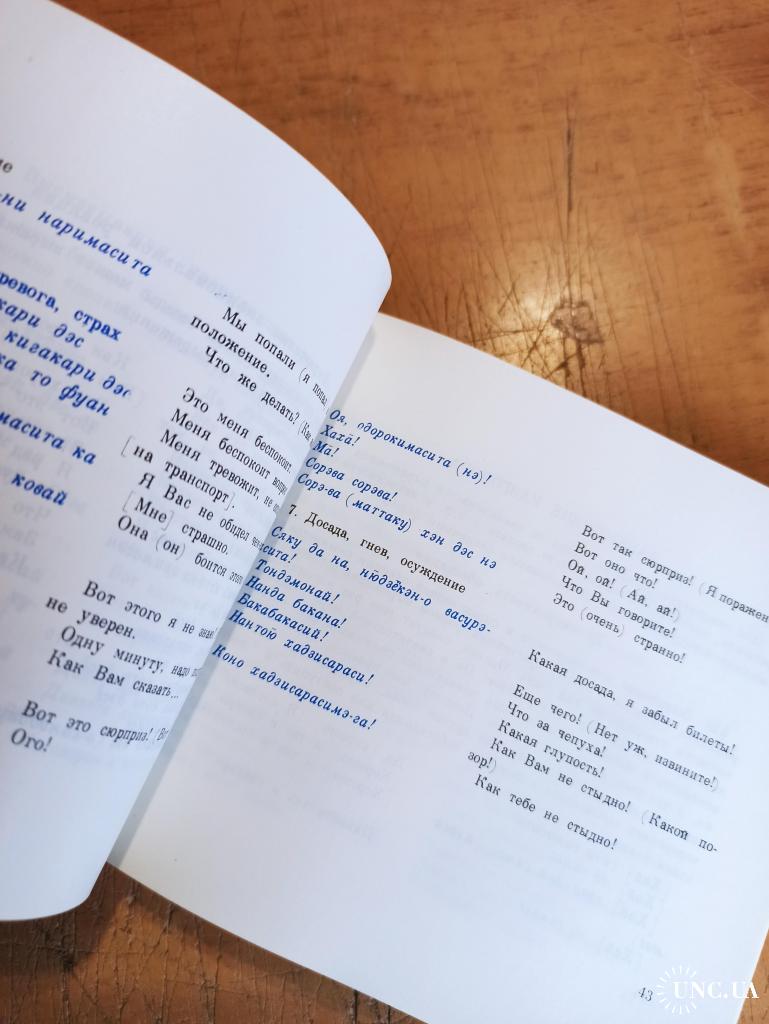 ни наримасита
ревога, страх
кари дэс
кигакари дэс
ка то фуан
масита ка
ковай
Мы попали (я попал
положение.
Что же делать? (Как
Это меня беспокоит.
Меня беспокоит
Меня тревожит, не
[на транспорт].
Я Вас не обидел
[Мне] страшно.
Она (он) боится этого
Вот этого я не знаю
не уверен.
Одну минуту, надо
Как Вам сказать...
Вот это сюрприз!
Ого!
Оя, одорокимасита (нэ)!
Хаха̄!
Ма̄!
Сорэва сорэва!
Сорэ-ва (маттаку) хэн дэс нэ
7. Досада, гнев, осуждение
Сяку да на, ню̄дзё̄кэн-о васурэ-
сита!
Тондэмонай!
Нанда бакана!
Бакабакасий!
Нантою̄ хадзисараси!
Коно хадзисарасимэ-га!
Вот так сюрприз! (Я поражен
Вот оно что!
Ой, ой! (Ай, ай!)
Что Вы говорите!
Это (очень) странно!
Какая досада, я забыл билеты!
Еще чего! (Нет уж, извините!)
Что за чепуха!
Какая глупость!
Как Вам не стыдно! (Какой по-
зор!)
Как тебе не стыдно!
43
UNC.UA